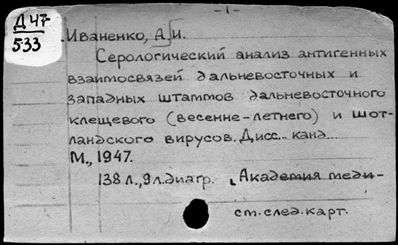 - 1 -
Д 47
533
Иваненко, А.И.
Серологический анализ антигенных
взаимосвязей дальневосточных и
западных штаммов дальневосточного
клещевого (весенне-летнего) и шот-
ландского вирусов. Дисс... канд...
М., 1947.
138 л., 9 л. диагр. (Академия меди-
см. след. карт.